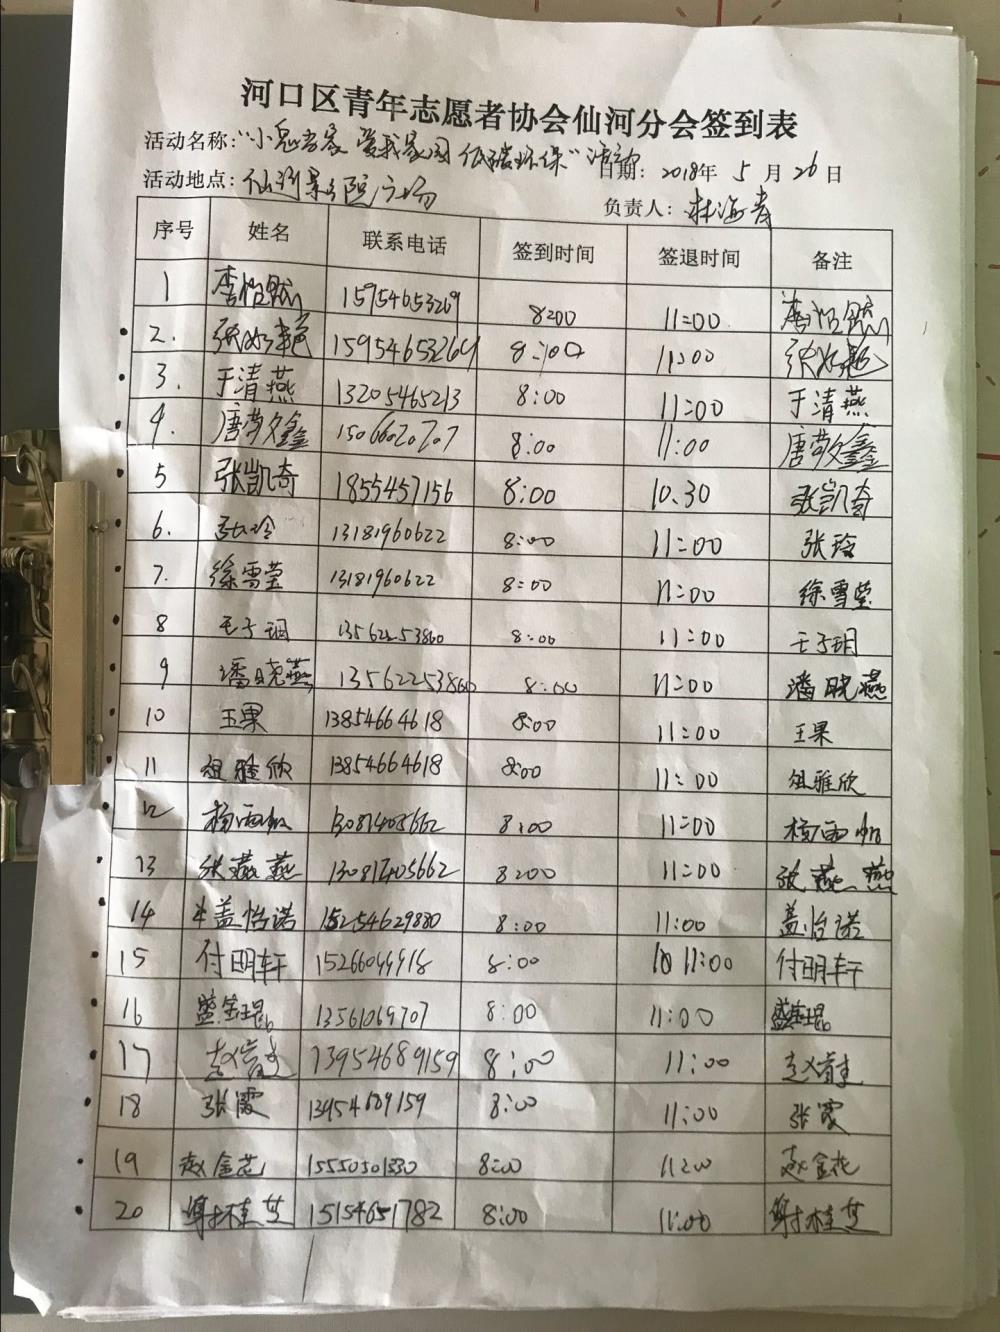 河口区青年志愿者协会仙河分会签到表
活动名称："小鬼当家 爱我家园 低碳环保"活动 日期：2018年 5 月 26 日
活动地点：仙河影剧院广场 负责人：林海青
序号 姓名 联系电话 签到时间 签退时间 备注
1 李怡然 15954653269 8:00 11:00 李怡然
2. 15954653269 8:00 11:00
3. 于清燕 13205465213 8:00 11:00 于清燕
4. 唐敬鑫 1506620707 8:00 11:00 唐敬鑫
5 张凯奇 1855457156 8:00 10.30 张凯奇
6. 张玲 13181960622 8:00 11:00 张玲
7. 徐雪莹 13181960622 8:00 11:00 徐雪莹
8 王子玥 13562253860 8:00 11:00 王子玥
9 潘晓燕 13562253860 8:00 11:00 潘晓燕
10 王果 13854664618 8:00 11:00 王果
11 俎雅欣 13854664618 8:00 11:00 俎雅欣
12 杨雨 13081405662 8:00 11:00 杨雨
13 张燕燕 13081405662 8:00 11:00 张燕燕
14 盖怡诺 15254629880 8:00 11:00 盖怡诺
15 付明轩 15266044918 8:00 11:00 付明轩
16 盛金琨 13561069707 8:00 11:00 盛金琨
17 赵 13954689159 8:00 11:00 赵
18 张霞 13954689159 8:00 11:00 张霞
19 赵金花 15550501330 8:00 11:00 赵金花
20 谢桂芝 15154651782 8:00 11:00 谢桂芝